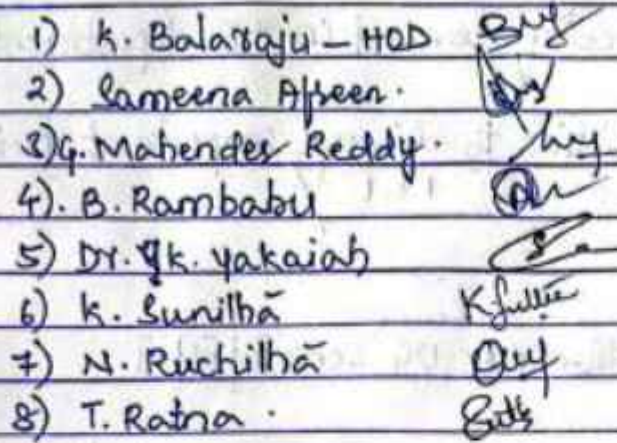 1) K. Balaraju - HOD
2) Sameena Afseen.
3) G. Mahender Reddy.
4). B. Rambabu
5) Dr. K. Yakaiah
6) K. Sunilhā
7) N. Ruchilhā
8) T. Ratna.